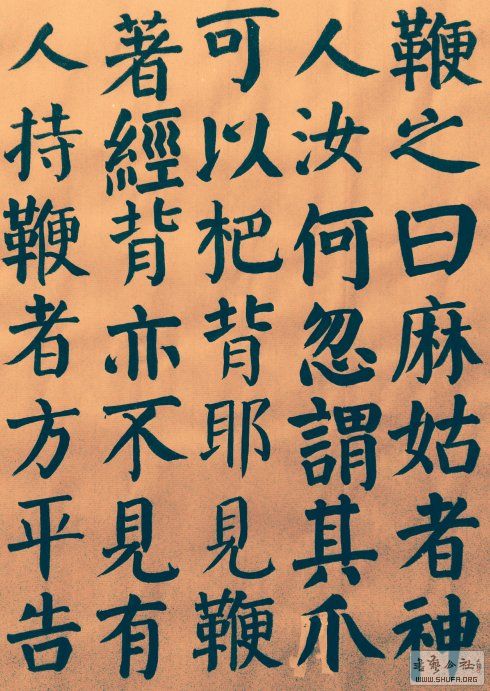 鞭之曰麻姑者神
人汝何忽謂其爪
可以杷背耶見鞭
著經背亦不見有
人持鞭者方平告
書藝公社
WWW.SHUFA.ORG